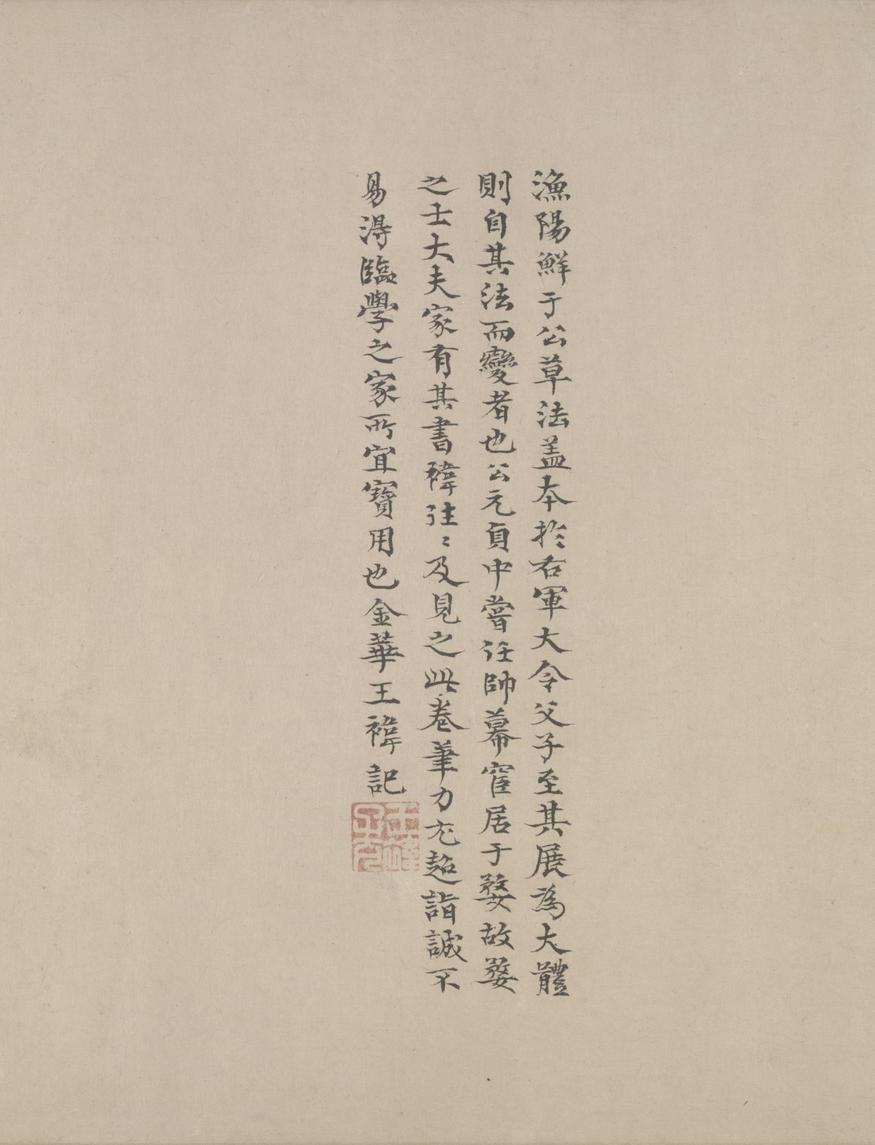 漁陽鮮于公草法盖本於右軍大令父子至其展為大體
則自其法而變者也公元貞中嘗任帥幕居于婺故婺
之士大夫家有其書褘往〻及見之此卷筆力尤超詣誠不
易得臨學之家所宜寶用也金華王褘記